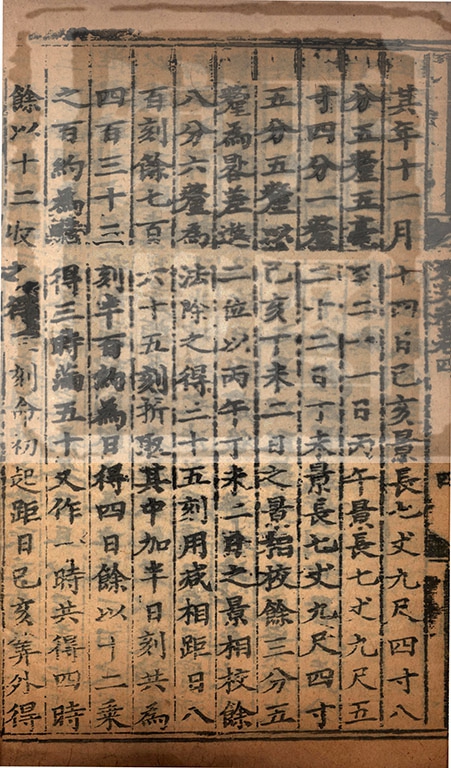 其年十一月十四日己亥景長七丈九尺四寸八
分五釐五毫至二十一日丙午景長七丈九尺五
寸四分一釐二十二日丁未景長七丈九尺四寸
五分五釐以己亥丁未二日之景相校餘三分五
釐為晷差進二位以丙午丁未二日之景相校餘
八分六釐為法除之得三十五刻用減相距日八
百刻餘七百六十五刻折取其中加半日刻共為
四百三十三刻半百約為日得四日餘以十二乘
之百約為時得三時滿五十又作一時共得四時
餘以十二收之得三刻命初起距日己亥筭外得